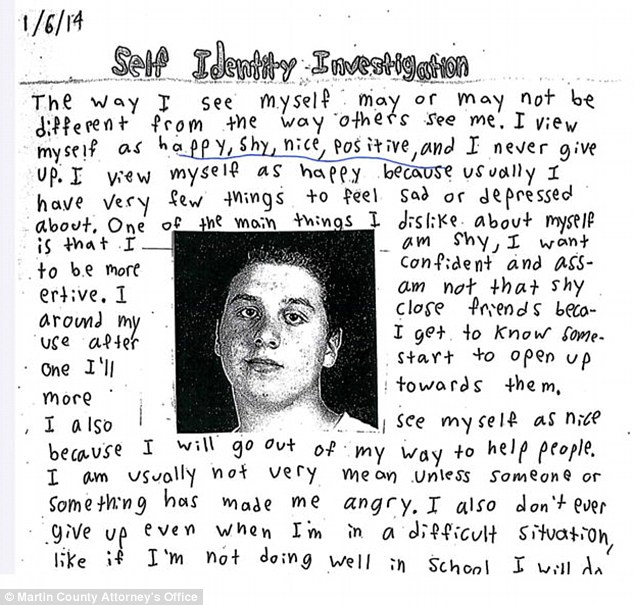 1/6/14
Self Identity Investigation
The way I see myself may or may not be
different from the way others see me. I view
myself as happy, shy, nice, positive, and I never give
up. I view myself as happy because usually I
have very few things to feel sad or depressed
about. One of the main things I dislike about myself
is that I am shy, I want
to be more confident and ass-
ertive. I am not that shy
around my close friends beca-
use after I get to know some-
one I'll start to open up
more towards them.
I also see myself as nice
because I will go out of my way to help people.
I am usually not very mean unless someone or
something has made me angry. I also don't ever
give up even when I'm in a difficult situation,
like if I'm not doing well in school I will do
© Martin County Attorney's Office